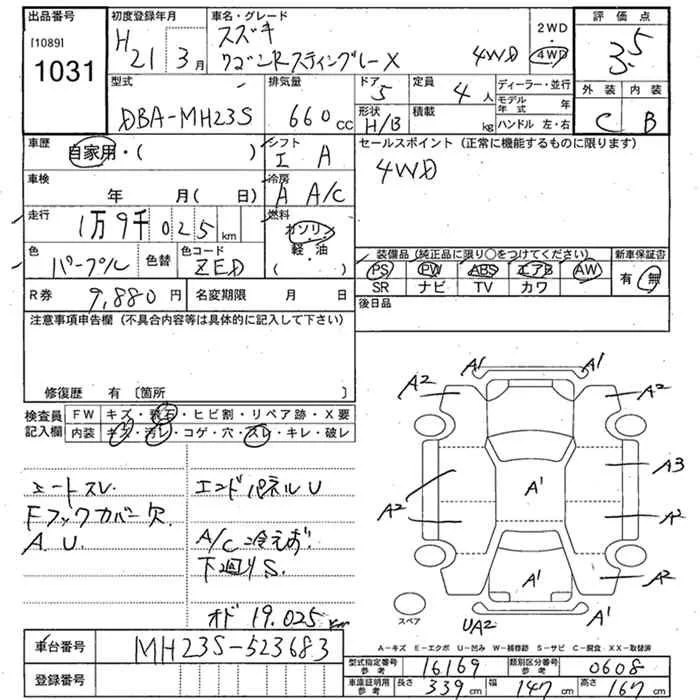 出品番号
[1089]
1031
初度登録年月
H21 3月
車名・グレード
スズキ
ワゴンRスティングレーX 4WD
2WD
4WD
評価点
3.5
外装 内装
C B
型式
DBA-MH23S
排気量
660cc
ドア
5
形状
H/B
定員
4人
積載
kg
ディーラー・並行
モデル年式 年
ハンドル 左・右
車歴
自家用・( )
シフト
I A
セールスポイント(正常に機能するものに限ります)
4WD
車検
年 月( 日)
冷房
A A/C
走行
1万9千025km
燃料
ガソリン
軽・油
色
パープル
色替
色コード
ZED
装備品(純正品に限り○をつけてください)
PS PW ABS エアB AW
SR ナビ TV カワ
新車保証書
有・無
R券
9,880円
名変期限 月 日
後日品
注意事項申告欄(不具合内容等は具体的に記入して下さい)
修復歴 有〔箇所 〕
検査員記入欄
FW キズ・飛石・ヒビ割・リペア跡・X要
内装 キズ・汚レ・コゲ・穴・スレ・キレ・破レ
シートスレ
Fフックカバー欠
A.U.
エンドパネルU
A/C冷えず
下廻りS.
オド 19.025km
A1 A1
A2 A2
A3
A1
A2 A2
A2
A1 A1
UA2
スペア
A-キズ E-エクボ U-凹み W-補修跡 S-サビ C-腐食 XX-取替済
車台番号
MH23S-523683
登録番号
型式指定番号参考
16169
類別区分番号参考
0608
車庫証明用参考
長さ 339cm
幅 147cm
高さ 167cm